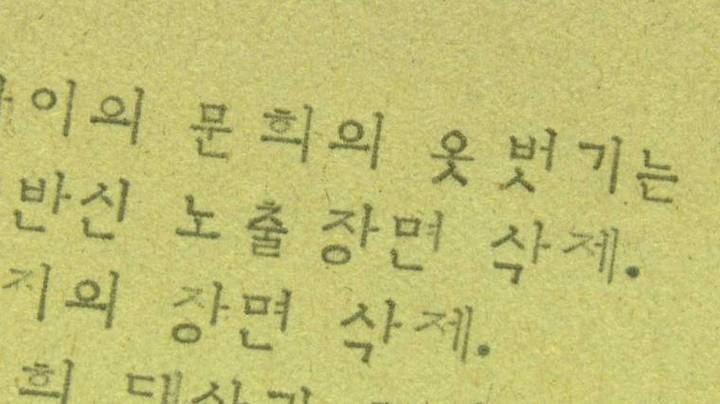 이의 문희의 옷 벗기는
반신 노출 장면 삭제.
지의 장면 삭제.
희